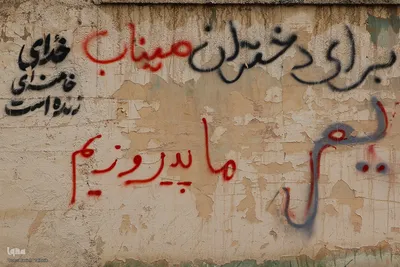 برای دختران میناب
خدای
خامنه‌ای
زنده است
ما پیروزیم
یم